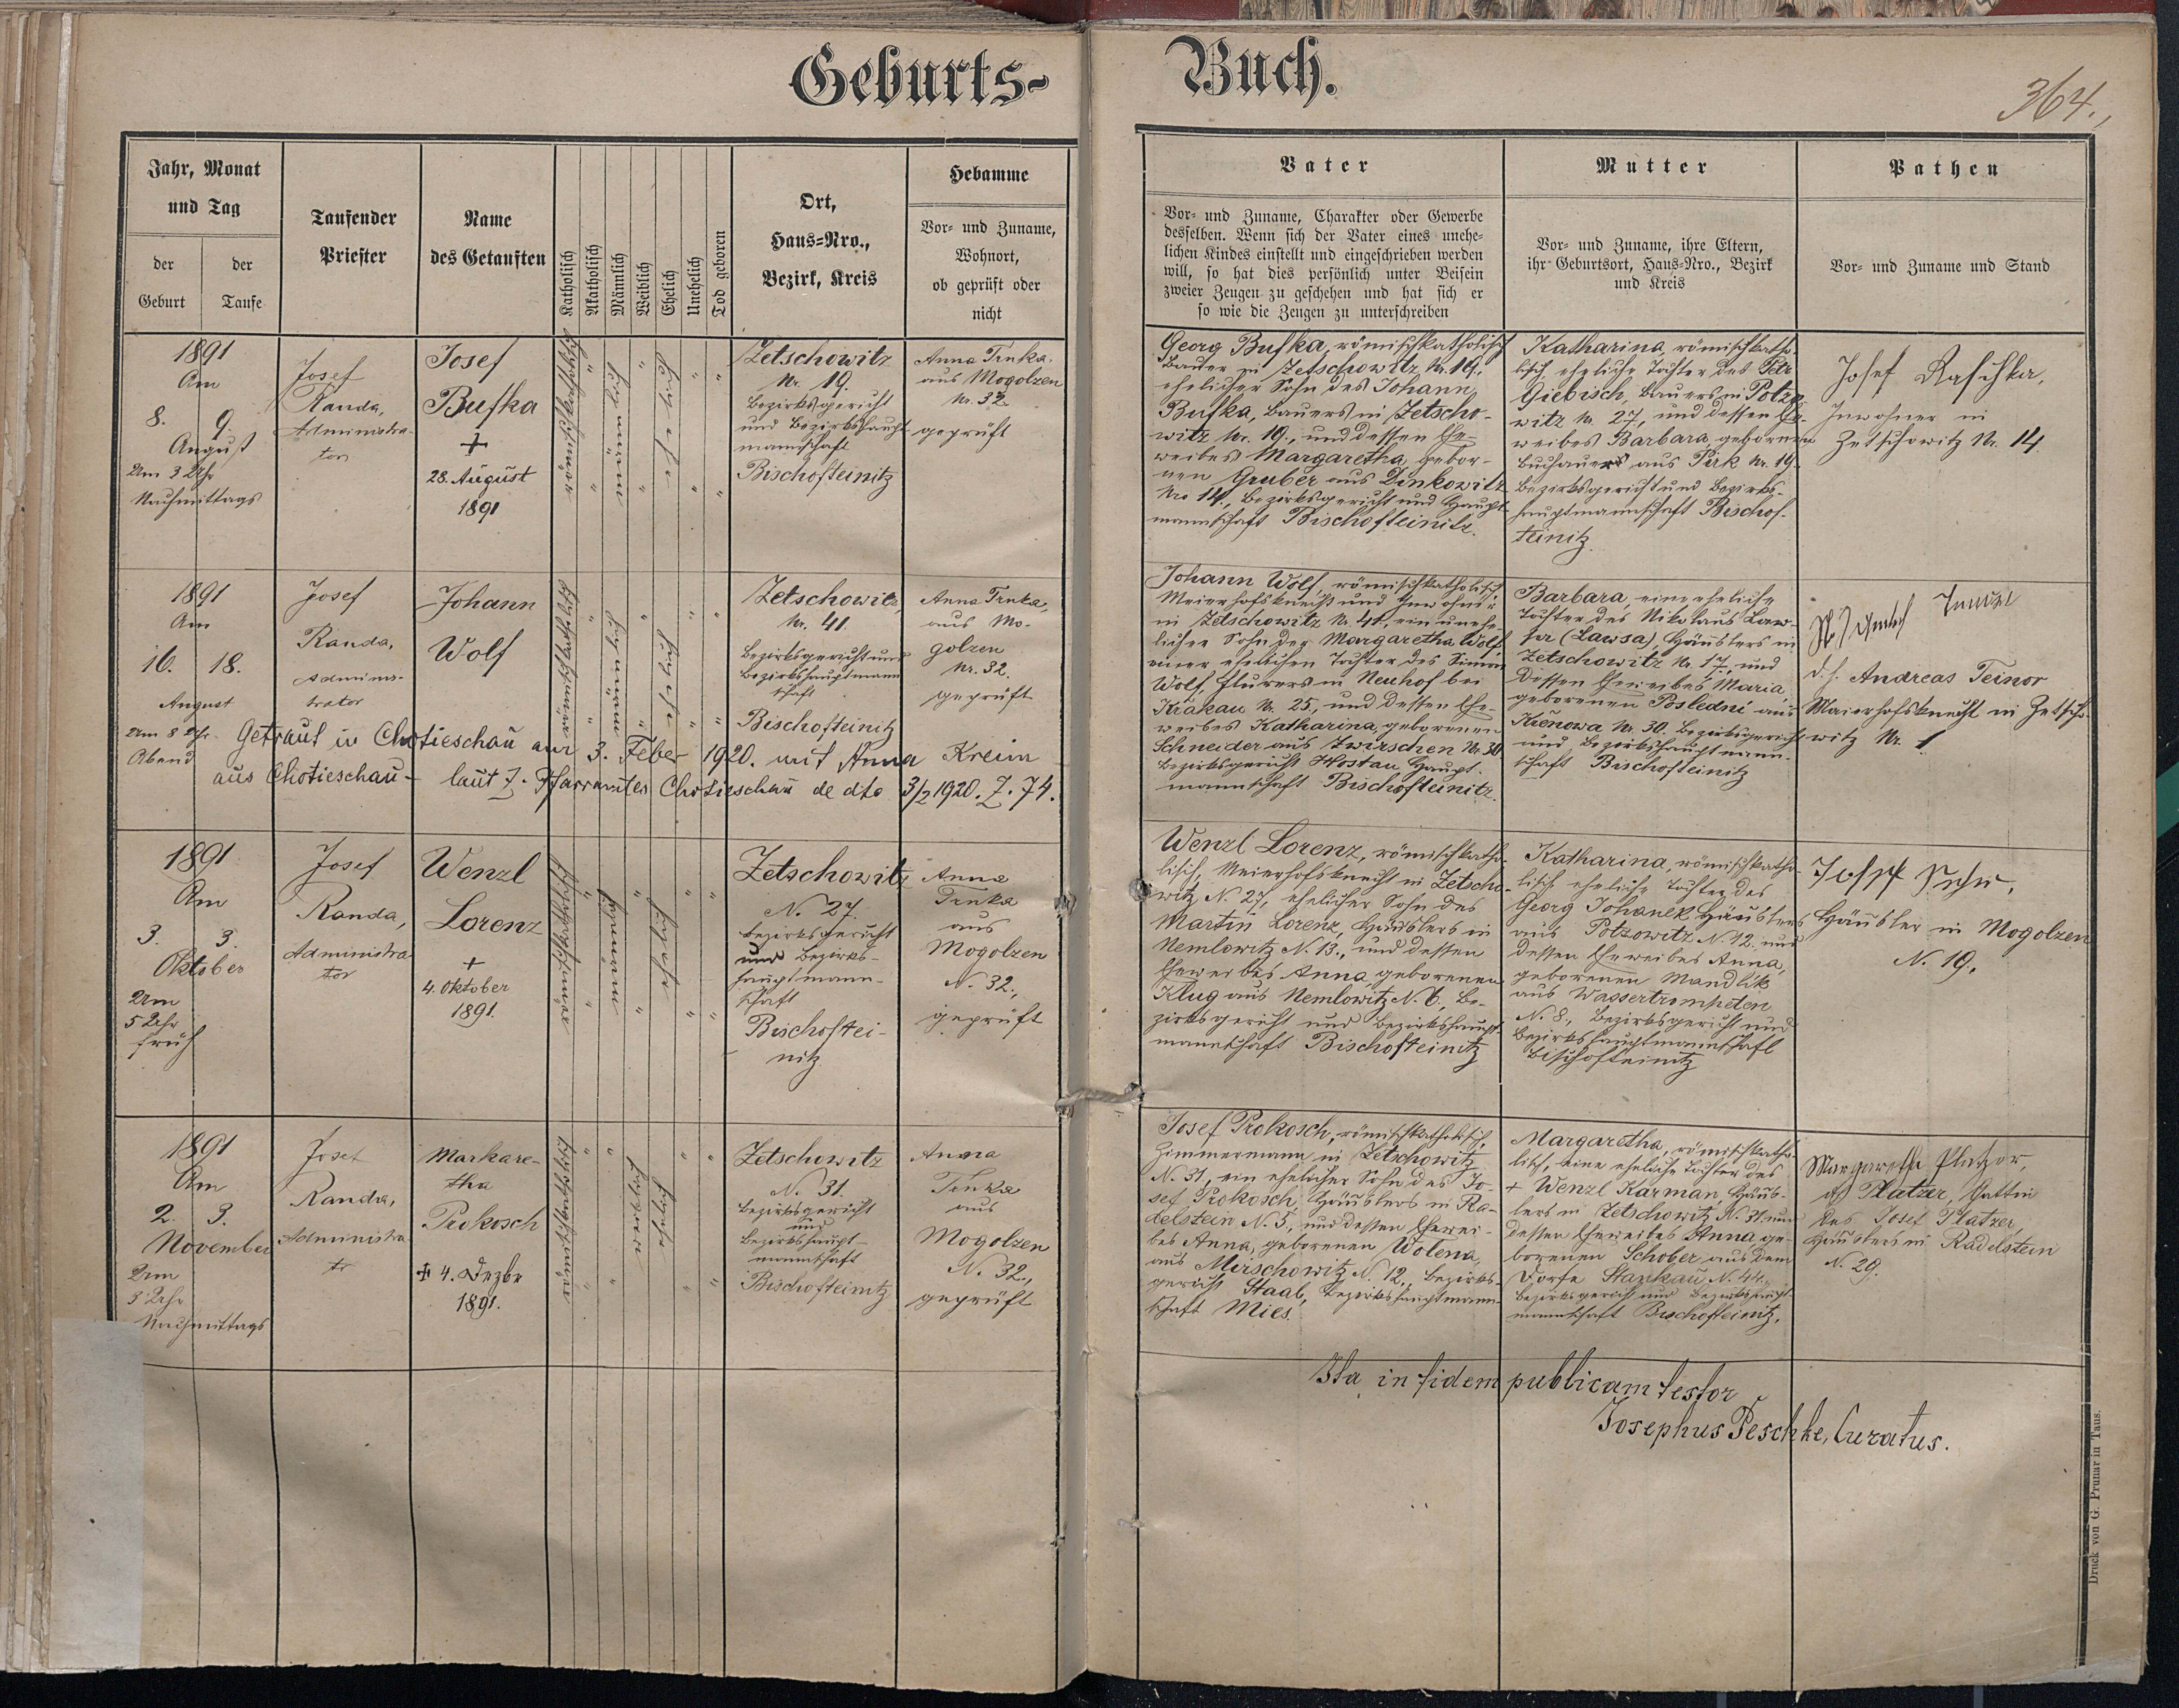 Geburts-
Buch.
364.,
Jahr, Monat
und Tag
der
Geburt
der
Taufe
Taufender
Priester
Name
des Getauften
Katholisch
Akatholisch
Männlich
Weiblich
Ehelich
Unehelich
Tod geboren
Ort,
Haus-Nro.,
Bezirk, Kreis
Hebamme
Vor- und Zuname,
Wohnort,
ob geprüft oder
nicht
Vater
Vor- und Zuname, Charakter oder Gewerbe
desselben. Wenn sich der Vater eines unehe-
lichen Kindes einstellt und eingeschrieben werden
will, so hat dies persönlich unter Beisein
zweier Zeugen zu geschehen und hat sich er
so wie die Zeugen zu unterschreiben
Mutter
Vor- und Zuname, ihre Eltern,
ihr Geburtsort, Haus-Nro., Bezirk
und Kreis
Pathen
Vor- und Zuname und Stand
1891
Am
8. 9.
August
Um 3 Uhr
Nachmittags
Josef
Randa,
Administra-
tor
Josef
Bufka
+
28. August
1891
Zetschowitz
Nr. 19.
Bezirksgericht
und Bezirkshaupt
mannschaft
Bischofteinitz
Anna Trnka
aus Mogolzen
Nr. 32
geprüft
Georg Bufka, römischkatholisch
Bauer in Zetschowitz Nr. 19,
ehelicher Sohn des Johann
Bufka, Bauers in Zetscho-
witz Nr. 19., und dessen Ehe-
weibes Margaretha, gebor-
nen Gruber aus Dinkowitz
Nro 14, Bezirksgericht und Haupt-
mannschaft Bischofteinitz.
Katharina, römischkatho-
lisch eheliche Tochter des Petr
Giebisch, Bauers in Potzo-
witz Nr. 27, und dessen Ehe-
weibes Barbara gebornen
Buchauer aus Pirk Nr. 19.
Bezirksgericht und Bezirks-
hauptmannschaft Bischof-
teinitz.
Josef Raschka,
Inwohner in
Zetschowitz Nr. 14
1891
Am
16. 18.
August
Um 8 Uhr
Abend
Josef
Randa,
Adminis-
trator
Johann
Wolf
Zetschowitz,
Nr. 41.
Bezirksgericht und
Bezirkshauptmann
schaft
Bischofteinitz
Anna Trnka,
aus Mo-
golzen
Nr. 32.
geprüft
Getraut in Chotieschau am 3. Feber 1920. mit Anna Kreim
aus Chotieschau - laut Z. Pfarramtes Chotieschau de dto 3/2 1920. Z. 74.
Johann Wolf, römischkatholisch,
Meierhofsknecht und Inwohner
in Zetschowitz Nr. 41, ein unehe-
licher Sohn der Margaretha Wolf
einer ehelichen Tochter des Simon
Wolf, Flurers in Neuhof bei
Krakau Nr. 25., und dessen Ehe-
weibes Katharina, geborenen
Schneider aus Zwirschen Nr. 30
Bezirksgericht Hostau Haupt-
mannschaft Bischofteinitz.
Barbara, eine eheliche
Tochter des Nikolaus Law-
sa (Lawsa), Häuslers in
Zetschowitz Nr. 17, und
dessen Eheweibes Maria,
geborenen Poslední aus
Krenowa Nr. 30. Bezirksgericht
und Bezirkshauptmann-
schaft Bischofteinitz
d. h. Andreas Teinor
Maierhofsknecht in Zetscho-
witz Nr. 1
1891
Am
3. 3.
Oktober
Um
5 Uhr
früh
Josef
Randa,
Administra
tor
Wenzl
Lorenz
+
4. Oktober
1891.
Zetschowitz
N. 27.
Bezirksgericht
und Bezirks-
hauptmann-
schaft
Bischoftei-
nitz
Anna
Trnka
aus
Mogolzen
N. 32.,
geprüft
Wenzl Lorenz, römischkatho-
lisch, Meierhofsknecht in Zetscho-
witz N. 27, ehelicher Sohn des
Martin Lorenz, Häuslers in
Nemlowitz N. 13., und dessen
Eheweibes Anna, geborenen
Klug aus Nemlowitz N. 6., Be-
zirksgericht und Bezirkshaupt-
mannschaft Bischofteinitz
Katharina, römischkatho-
lisch eheliche Tochter des
Georg Johanek Häuslers
aus Potzowitz N. 12. und
dessen Eheweibes Anna,
geborenen Mandlik
aus Wassertrompeten
N. 8., Bezirksgericht und
Bezirkshauptmannschaft
Bischofteinitz
Josef
Häusler in Mogolzen
N. 19.
1891
Am
2. 3.
November
Um
3 Uhr
Nachmittags
Josef
Randa,
Administra-
tr
Markare-
tha
Prokosch
+ 4. Dezbr
1891.
Zetschowitz
N. 31.
Bezirksgericht
und
Bezirkshaupt-
mannschaft
Bischofteinitz
Anna
Trnka
aus
Mogolzen
N. 32.,
geprüft
Josef Prokosch, römischkatholisch,
Zimmermann in Zetschowitz
N. 31, ein ehelicher Sohn des Jo-
sef Prokosch, Häuslers in Ra-
delstein N. 5., und dessen Ehewei-
bes Anna, geborenen Wolena,
aus Mirschowitz N. 12., Bezirks-
gericht Staab, Bezirkshauptmann-
schaft Mies.
Margaretha, römischkatho-
lisch, eine eheliche Tochter des
+ Wenzl Karman, Häus-
lers in Zetschowitz N. 31. und
dessen Eheweibes Anna ge-
borenen Schober aus dem
Dorfe Stankau N. 44.,
Bezirksgericht und Bezirkshaupt-
mannschaft Bischofteinitz.
Margaretha Platzer,
Platzer, Gattin
des Josef Platzer,
Häuslers in Radelstein
N. 29.
Ita in fidem publicam testor
Josephus Peschke, Curatus.
Druck von G. Prunar in Taus.